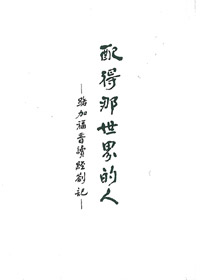 配得那世界的人
—路加福音讀經劄記—